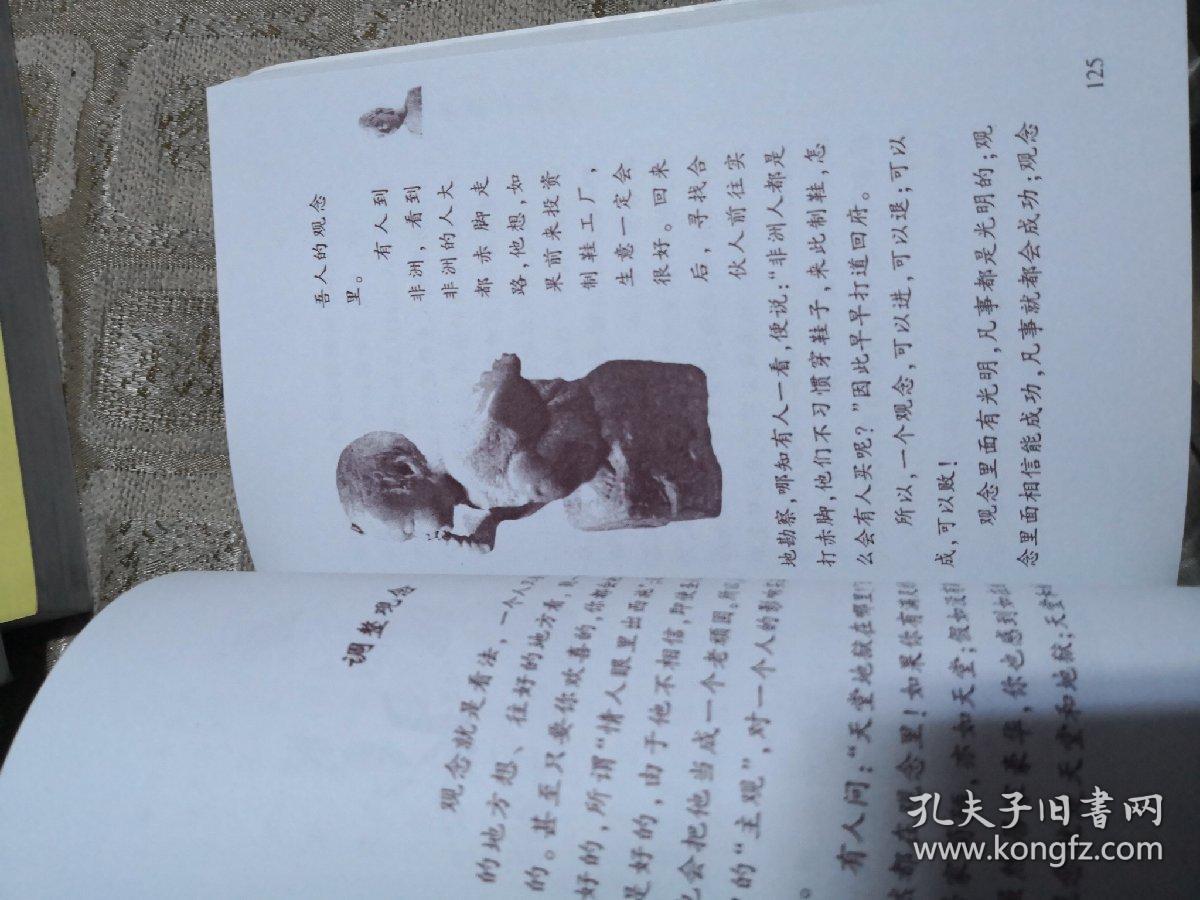 调整观念
观念就是看法，一个人
的地方想、往好的地方看，
的。甚至只要你欢喜的，你都会
好的，所谓“情人眼里出西施”
是好的，由于他不相信，即使
也会把他当成一个老顽固。所
的“主观”，对一个人的影响
。
有人问：“天堂地狱在哪里
都在观念里！如果你有满
家，亦如天堂；假如没有
荣华，你也感到如
天堂和地狱；天堂和
吾人的观念
里。
有人到
非洲，看到
非洲的人大
都赤脚走
路，他想，如
果前来投资
制鞋工厂，
生意一定会
很好。回来
后，寻找合
伙人前往实
地勘察，哪知有人一看，便说：“非洲人都是
打赤脚，他们不习惯穿鞋子，来此制鞋，怎
么会有人买呢？”因此早早打道回府。
所以，一个观念，可以进，可以退；可以
成，可以败！
观念里面有光明，凡事都是光明的；观
念里面相信能成功，凡事就都会成功；观念
125
孔夫子旧书网
www.kongfz.com